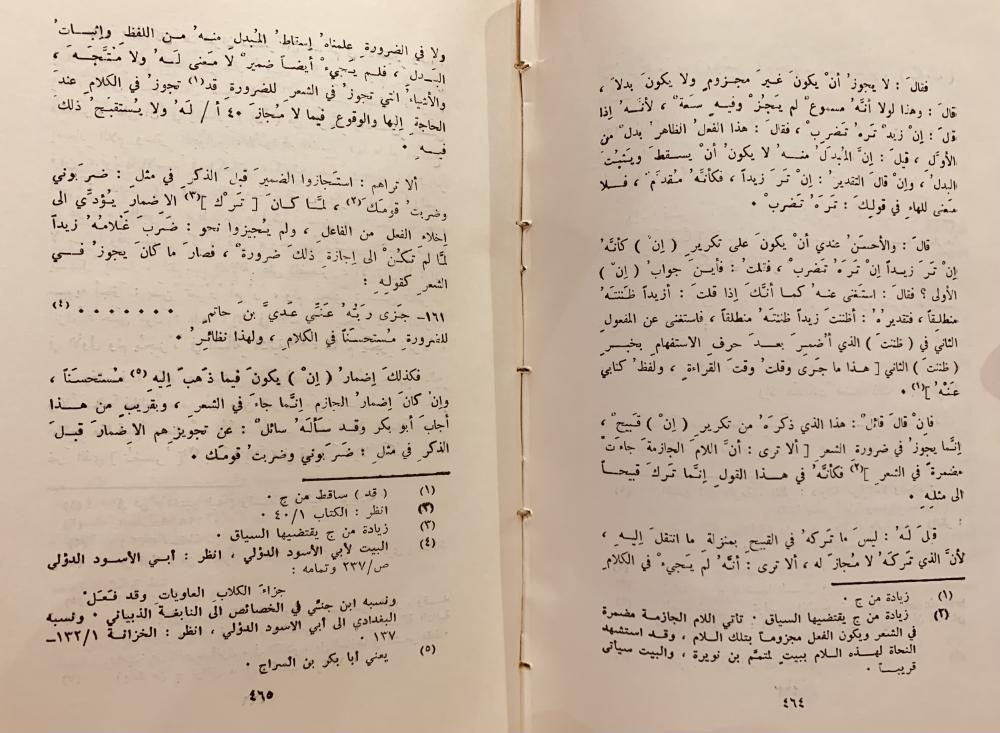 فقالَ : لا يجوزُ أنْ يكونَ غيرَ مجزومٍ ولا يكونَ بدلاً ،
قالَ : وهذا لولا أنَّهُ مسموعٌ لم يَجُزْ وفيهِ سَعَةٌ ، لأنَّهُ إذا
قلَ : إنْ زيدٌ تَرَهُ تَضربْ ، فقالَ : هذا الفعلُ الظاهرُ بدلٌ من
الأوَّلِ ، قيلَ : إنَّ المُبدلَ منهُ لا يكونُ أنْ يسقطَ ويَثبتَ
البدلُ ، وإنْ قالَ التقديرُ : إنْ تَرَ زيداً ، فكأنَّهُ مُقدَّمٌ ، فلا
معنى للهاءِ في قولِكَ : تَرَهُ تَضربْ ٠
قالَ : والأحسنُ عندي أنْ يكونَ على تكريرِ ( إنْ ) كأنَّهُ
إنْ تَرَ زيداً إنْ تَرَهُ تَضربْ ، فقلتُ : فأينَ جوابُ ( إنْ )
الأولى ؟ فقالَ : استغنى عنهُ كما أنَّكَ إذا قلتَ : أزيداً ظَننتَهُ
منطلقاً ، فتقديرُهُ : أظننتَ زيداً ظننتَهُ منطلقاً ، فاستغنى عن المفعولِ
الثاني في ( ظننت ) الذي أُضمرَ بعدَ حرفِ الاستفهامِ بخبرِ
( ظننتَ ) الثاني [ هذا ما جَرى وقلتُ وقتَ القراءةِ ، ولفظُ كتابي
عَنْهُ ](١) ٠
فإنْ قالَ قائلٌ : هذا الذي ذكرَهُ من تكريرِ ( إنْ ) قبيحٌ ،
إنَّما يجوزُ في ضرورةِ الشعرِ [ ألا ترى : أنَّ اللامَ الجازمةَ جاءَتْ
مضمرةً في الشعرِ ](٢) فكأنَّهُ في هذا القولِ إنَّما تَركَ قبيحاً
الى مثلِهِ ٠
قيلَ لَهُ : ليسَ ما تركه في القبيحِ بمنزلةِ ما انتقلَ إليهِ ،
لأنَّ الذي تَركَهُ لا مُجازَ له ، ألا ترى : أنَّهُ لم يَجيءْ في الكلامِ
(١) زيادة من ج ٠
(٢) زيادة من ج يقتضيها السياق ٠ تأتي اللام الجازمة مضمرة
في الشعر ويكون الفعل مجزوماً بتلك اللام ، وقد استشهد
النحاة لهذه اللام ببيت لمتمم بن نويرة ، والبيت سيأتى
قريباً ٠
٤٦٤
ولا في الضرورةِ علمناهُ إسقاطُ المُبدلِ منهُ من اللفظِ وإثباتُ
البَدلِ ، فلم يَجيءْ أيضاً ضميرٌ لا مَعنى لَهُ ولا مُتَّجَهَ ،
والأشياءُ التي تجوزُ في الشعرِ للضرورةِ قد(١) تجوزُ في الكلامِ عندَ
الحاجةِ إليها والوقوعِ فيما لا مُجازَ ٤٠ أ / لَهُ ولا يُستقبحُ ذلكَ
فيهِ ٠
ألا تراهم : استَجازوا الضميرَ قبلَ الذكرِ في مثلِ : ضَرَبوني
وضربتُ قومَكَ(٢) ، لمَّا كانَ [ تَركُ ](٣) الاضمارِ يُؤدّي الى
إخلاءِ الفعلِ من الفاعلِ ، ولم يُجيزوا نحو : ضَرَبَ غُلامُهُ زيداً
لمَّا لم تَكُنْ الى إجازةِ ذلكَ ضرورةٌ ، فصارَ ما كانَ يجوزُ في
الشعرِ كقولِهِ :
١٦١ـ جَزى رَبُّهُ عَنّي عَديَّ بنَ حاتمٍ ٠ ٠ ٠ ٠ ٠ ٠ ٠ (٤)
للضرورةِ مُستحسَناً في الكلامِ ، ولهذا نظائرُ ٠
فكذلكَ إضمارُ ( إنْ ) يكونَ فيما ذَهبَ إليهِ (٥) مُستحسَناً ،
وإنْ كانَ إضمارُ الجازمِ إنَّما جاءَ في الشعرِ ، وبقريبٍ من هذا
أجابَ أبو بكرٍ وقد سألَهُ سائلٌ : عن تجويزِهم الاضمارَ قبلَ
الذكرِ في مثلِ : ضَرَبوني وضربتُ قومَكَ ٠
(١) ( قد ) ساقط من ج ٠
(٢) انظر : الكتاب ٤٠/١ ٠
(٣) زيادة من ج يقتضيها السياق ٠
(٤) البيت لأبي الأسود الدؤلي ، انظر : أبي الأسود الدؤلي
ص/٢٣٧ وتمامه :
جزاءَ الكلاب العاويات وقد فَعَلْ
ونسبه ابن جنّي في الخصائص الى النابغة الذبياني ٠ ونسبه
البغدادي الى أبي الاسود الدؤلي ، انظر : الخزانة ١٣٢/١ـ
١٣٧ ٠
(٥) يعني أبا بكر بن السراج ٠
٤٦٥